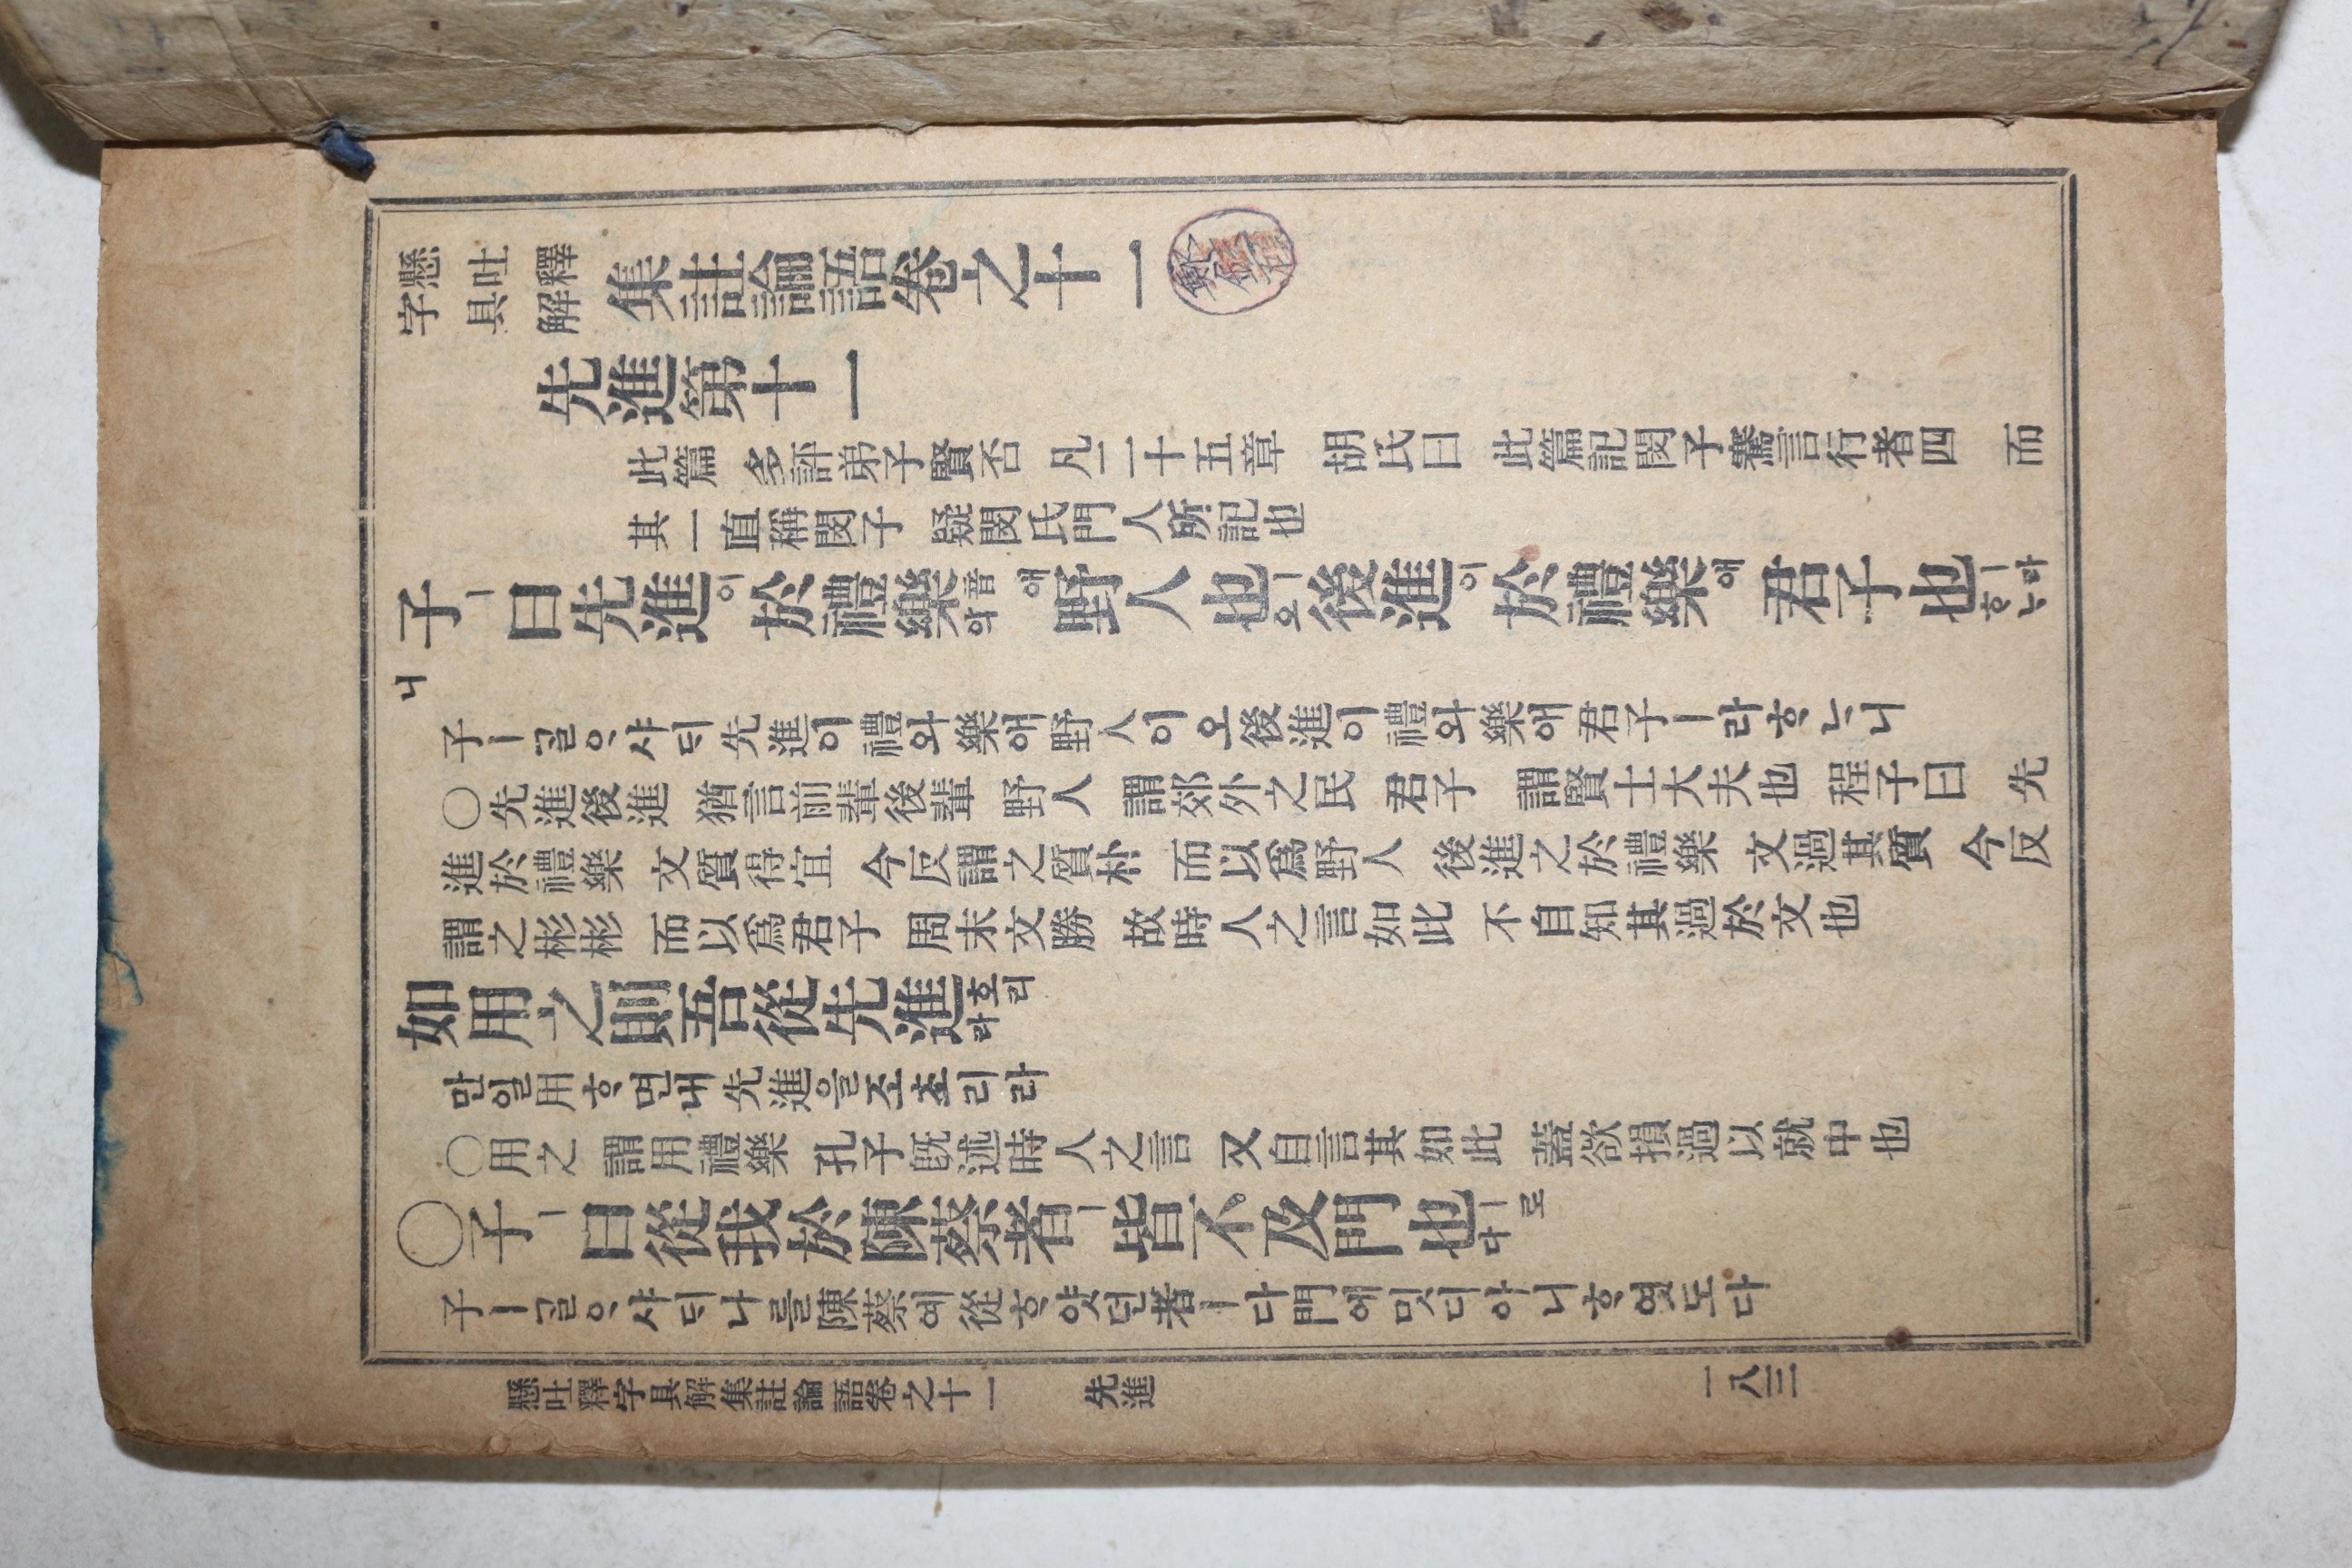 懸吐釋字具解 集註論語卷之十一
先進第十一
此篇 多評弟子賢否 凡二十五章 胡氏曰 此篇記閔子騫言行者四 而
其一直稱閔子 疑閔氏門人所記也
子ㅣ曰先進이於禮樂音악애野人也ㅣ오後進이於禮樂애君子也ㅣ라ᄒᆞᄂᆞ
니
子ㅣᄀᆞᆯᄋᆞ샤ᄃᆡ先進이禮와樂애野人이오後進이禮와樂애君子ㅣ라ᄒᆞᄂᆞ니
○先進後進 猶言前輩後輩 野人 謂郊外之民 君子 謂賢士大夫也 程子曰 先
進於禮樂 文質得宜 今反謂之質朴 而以爲野人 後進之於禮樂 文過其質 今反
謂之彬彬 而以爲君子 周末文勝 故時人之言如此 不自知其過於文也
如用之則吾從先進호리라
만일用ᄒᆞ면내先進을조초리라
○用之 謂用禮樂 孔子旣述時人之言 又自言其如此 蓋欲損過以就中也
○子ㅣ曰從我於陳蔡者ㅣ皆不及門也ㅣ로다
子ㅣᄀᆞᆯᄋᆞ샤ᄃᆡ나를陳蔡예從ᄒᆞ얏던者ㅣ다門에밋디아니ᄒᆞ엿도다
懸吐釋字具解集註論語卷之十一 先進 一八三